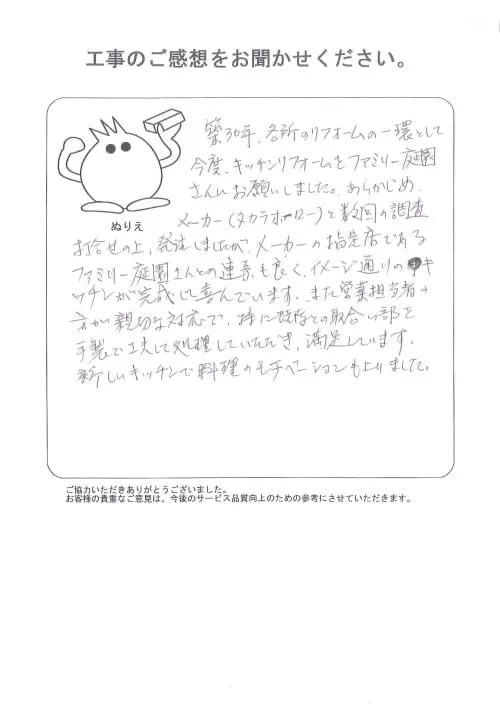 工事のご感想をお聞かせください。
築30年、各所のリフォームの一環として
今度、キッチンリフォームをファミリー庭園
さんにお願いしました。あらかじめ、
ぬりえ
メーカー(タカラスタンダード)と数回の調査、
打合せの上、発注しましたが、メーカーの指定店である
ファミリー庭園さんとの連携も良く、イメージ通りのキ
ッチンが完成し喜んでいます。また営業担当者の
方が親切な対応で、特に既存との取合い部を
手製で工夫して処理していただき、満足しています。
新しいキッチンで料理のモチベーションも上りました。
ご協力いただきありがとうございました。
お客様の貴重なご意見は、今後のサービス品質向上のための参考にさせていただきます。